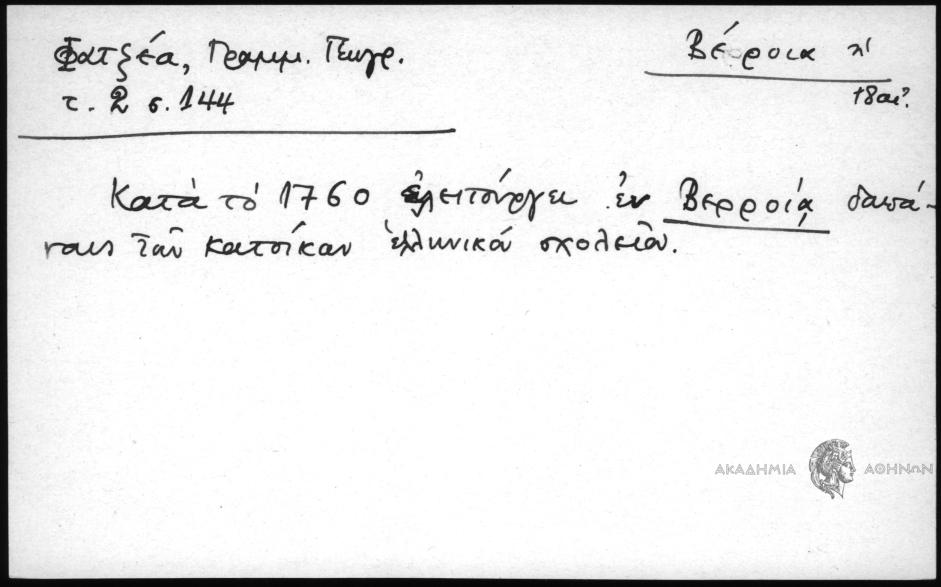 Φατζέα, Γραμμ. Γεωγρ.
τ. 2 σ. 144
Βέροια
18αι.
Κατὰ τὸ 1760 ἐλειτούργει ἐν Βερροίᾳ δαπά-
ναις τῶν κατοίκων ἑλληνικὸν σχολεῖον.
ΑΚΑΔΗΜΙΑ ΑΘΗΝΩΝ